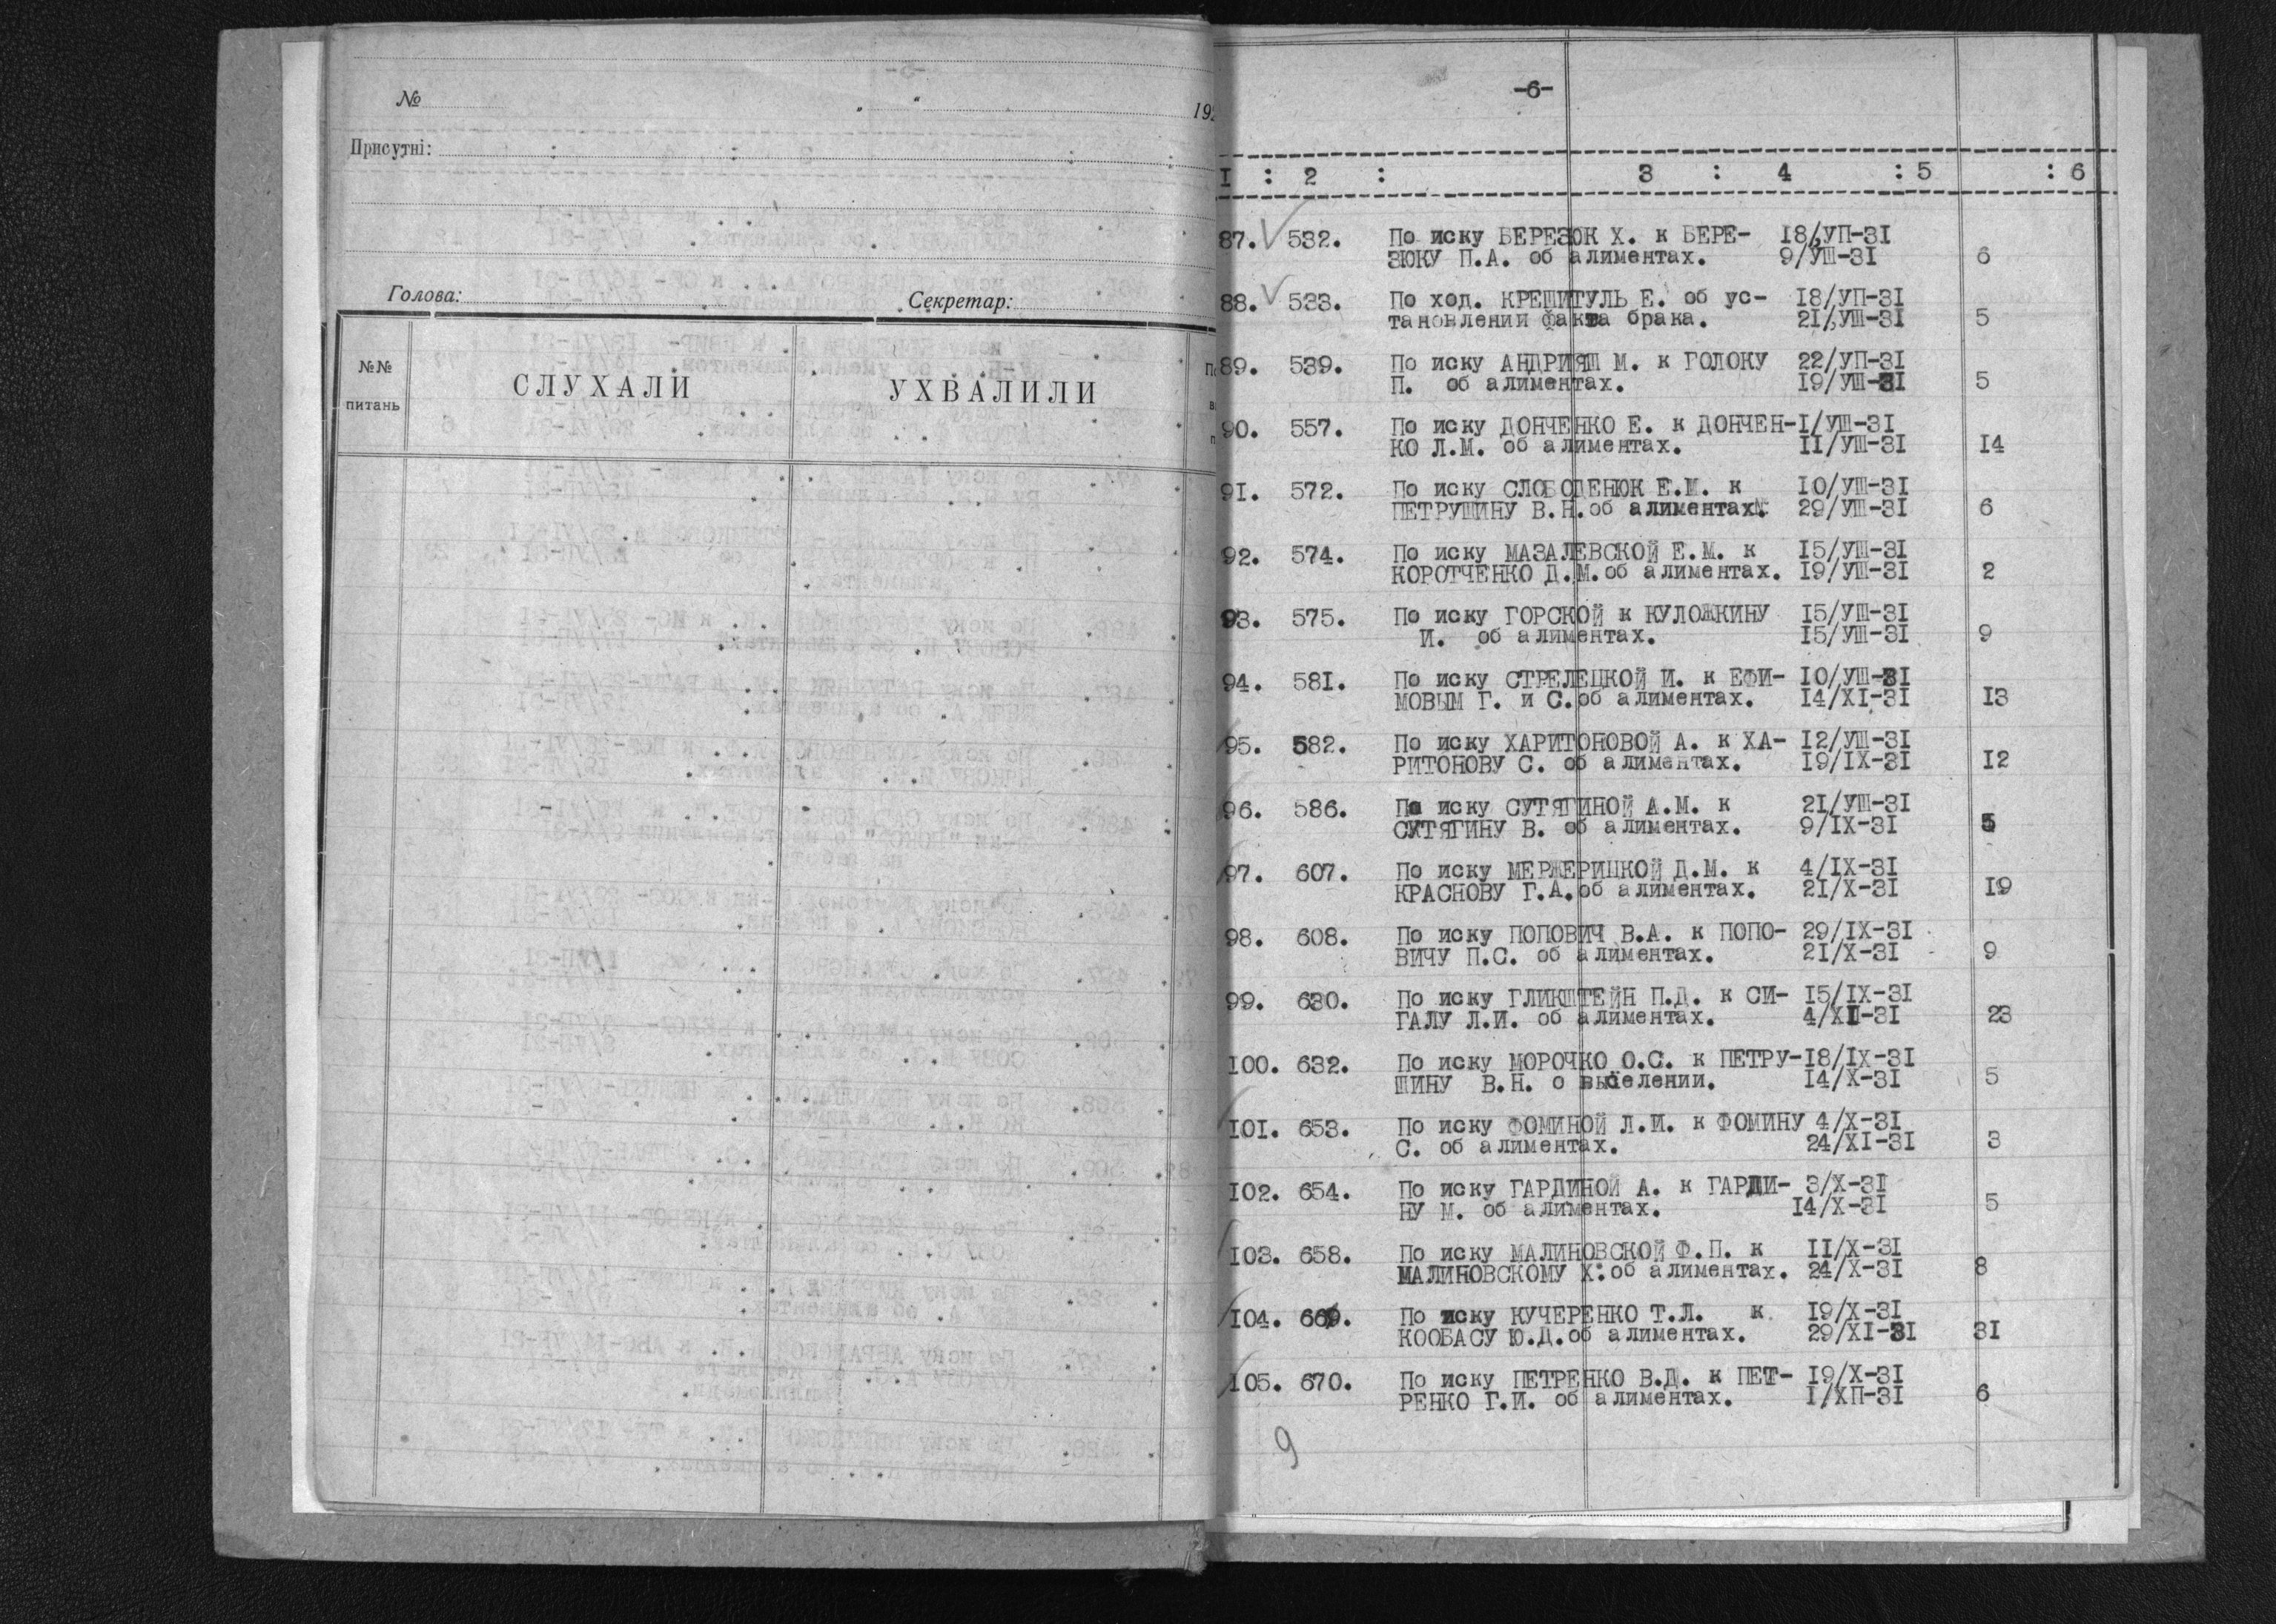 № " " 192
Присутні:
Голова: Секретар:
№№ питань СЛУХАЛИ УХВАЛИЛИ
-6-
I : 2 : 3 : 4 : 5 : 6
87. 532. По иску БЕРЕЗОК Х. к БЕРЕ- 18/УП-31
ЗЮКУ П.А. об алиментах. 9/УШ-31 6
88. 533. По ход. КРЕШИТУЛЬ Е. об ус- 18/УП-31
тановлении факта брака. 21/УШ-31 5
89. 539. По иску АНДРИЯШ М. к ГОЛОКУ 22/УП-31
П. об алиментах. 19/УШ-31 5
90. 557. По иску ДОНЧЕНКО Е. к ДОНЧЕН-I/УШ-31
КО Л.М. об алиментах. II/УШ-31 14
91. 572. По иску СЛОБОДЕНЮК Е.М. к 10/УШ-31
ПЕТРУШИНУ В.Н.об алиментах. 29/УШ-31 6
92. 574. По иску МАЗАЛЕВСКОЙ Е.М. к 15/УШ-31
КОРОТЧЕНКО Д.М.об алиментах. 19/УШ-31 2
93. 575. По иску ГОРСКОЙ к КУЛОЖКИНУ 15/УШ-31
И. об алиментах. 15/УШ-31 9
94. 581. По иску СТРЕЛЕЦКОЙ И. к ЕФИ- 10/УШ-31
МОВЫМ Г. и С.об алиментах. 14/XI-31 13
95. 582. По иску ХАРИТОНОВОЙ А. к ХА- 12/УШ-31
РИТОНОВУ С. об алиментах. 19/IX-31 12
96. 586. По иску СУТЯГИНОЙ А.М. к 21/УШ-31
СУТЯГИНУ В. об алиментах. 9/IX-31 5
97. 607. По иску МЕРЖЕРИЦКОЙ Д.М. к 4/IX-31
КРАСНОВУ Г.А.об алиментах. 21/X-31 19
98. 608. По иску ПОПОВИЧ В.А. к ПОПО- 29/IX-31
ВИЧУ П.С. об алиментах. 21/X-31 9
99. 630. По иску ГЛИКШТЕЙН П.Д. к СИ- 15/IX-31
ГАЛУ Л.И. об алиментах. 4/XII-31 23
100. 632. По иску МОРОЧКО О.С. к ПЕТРУ-18/IX-31
ШИНУ В.Н. о выселении. 14/X-31 5
101. 653. По иску ФОМИНОЙ Л.И. к ФОМИНУ 4/X-31
С. об алиментах. 24/XI-31 3
102. 654. По иску ГАРДИНОЙ А. к ГАРДИ- 3/X-31
НУ М. об алиментах. 14/X-31 5
103. 658. По иску МАЛИНОВСКОЙ Ф.П. к II/X-31
МАЛИНОВСКОМУ Х.об алиментах. 24/X-31 8
104. 669. По иску КУЧЕРЕНКО Т.Л. к 19/X-31
КООБАСУ Ю.Д.об алиментах. 29/XI-31 31
105. 670. По иску ПЕТРЕНКО В.Д. к ПЕТ- 19/X-31
РЕНКО Г.И. об алиментах. I/ХП-31 6
9